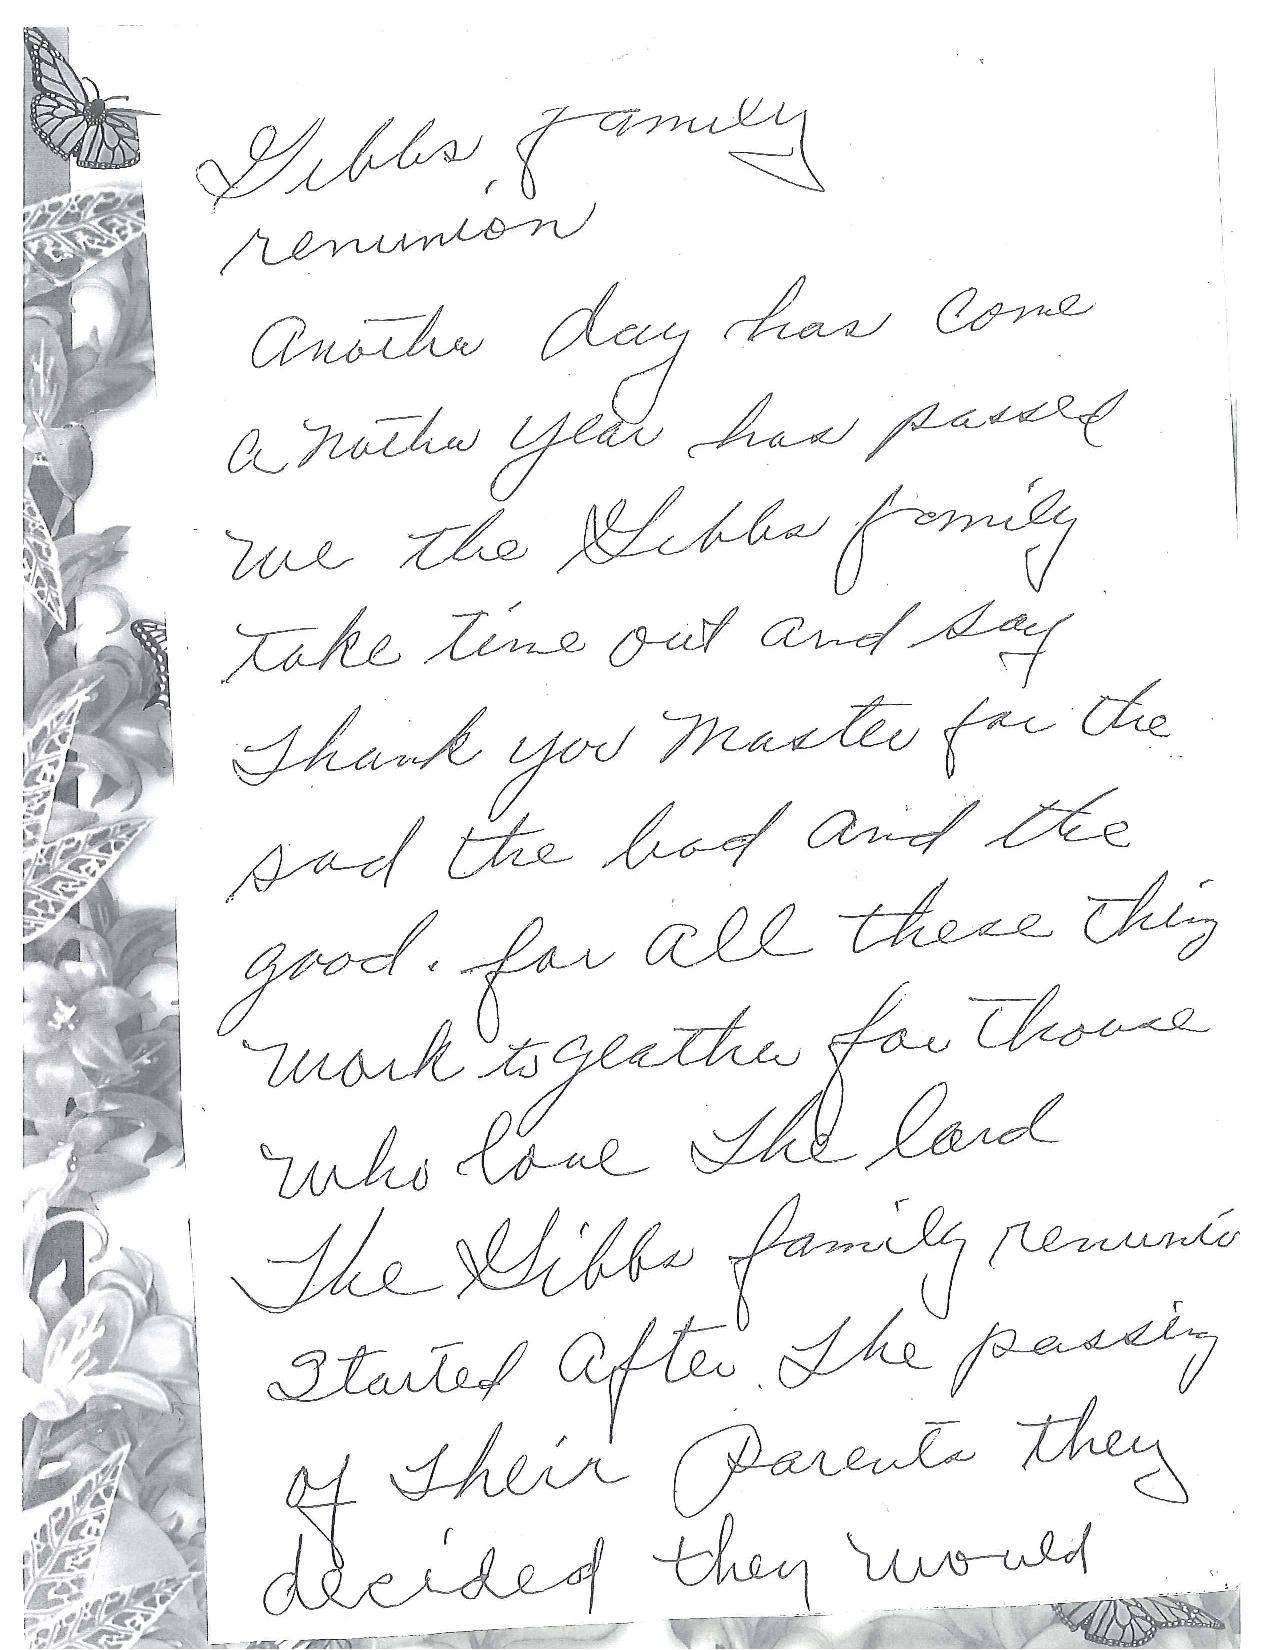 Gibbs family
renunion
Another day has come
a nother year has passed
we the Gibbs family
take time out and say
Thank you Master for the
sad the bad and the
good. for all these thing
work togeather for thouse
who love The lord
The Gibbs family renunio
Started After The passing
of Their Parents they
decided they would